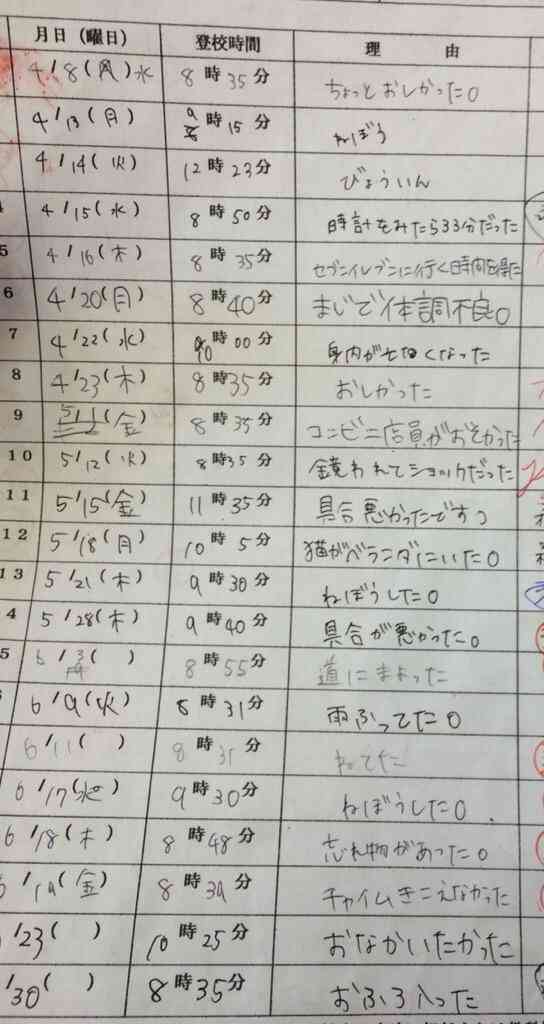 月日（曜日） 登校時間 理由
4/8(月)水 8時35分 ちょっとおしかった。
4/13(月) 9時15分 ねぼう
4/14(火) 12時23分 びょういん
4 4/15(水) 8時50分 時計をみたら33分だった
5 4/16(木) 8時35分 セブンイレブンに行く時間を得た
6 4/20(月) 8時40分 まじで体調不良。
7 4/22(水) 10時00分 身内が亡くなった
8 4/23(木) 8時35分 おしかった
9 5/1(金) 8時35分 コンビニ店員がおそかった
10 5/12(火) 8時35分 鏡われてショックだった
11 5/15(金) 11時35分 具合悪かったです。
12 5/18(月) 10時5分 猫がベランダにいた。
13 5/21(木) 9時30分 ねぼうした。
4 5/28(木) 9時40分 具合が悪かった。
5 6/3( ) 8時55分 道にまよった
6/9(火) 8時31分 雨ふってた。
6/11( ) 8時31分 ねてた
6/17(水) 9時30分 ねぼうした。
6/18(木) 8時48分 忘れ物があった。
6/19(金) 8時39分 チャイムきこえなかった
/23( ) 10時25分 おなかいたかった
/30( ) 8時35分 おふろ入った